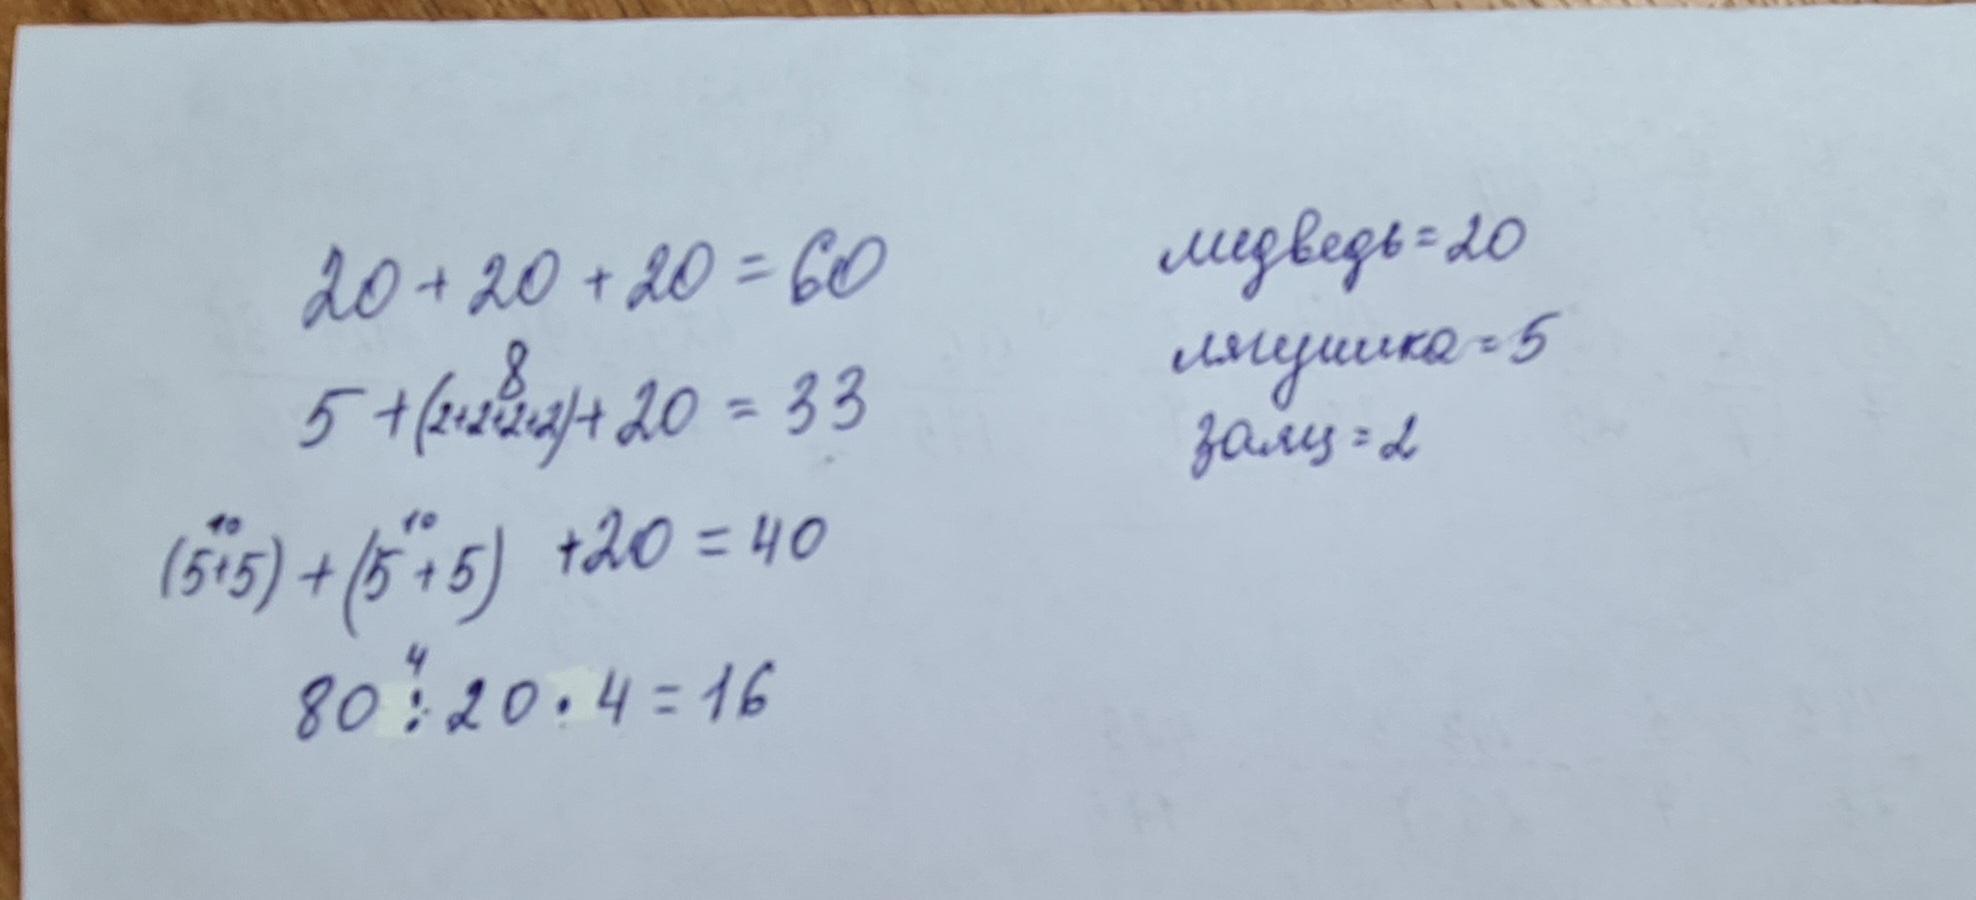 20 + 20 + 20 = 60
медведь = 20
8
5 + (2+2+2+2) + 20 = 33
лягушка = 5
заяц = 2
10 10
(5+5) + (5+5) + 20 = 40
4
80 : 20 · 4 = 16